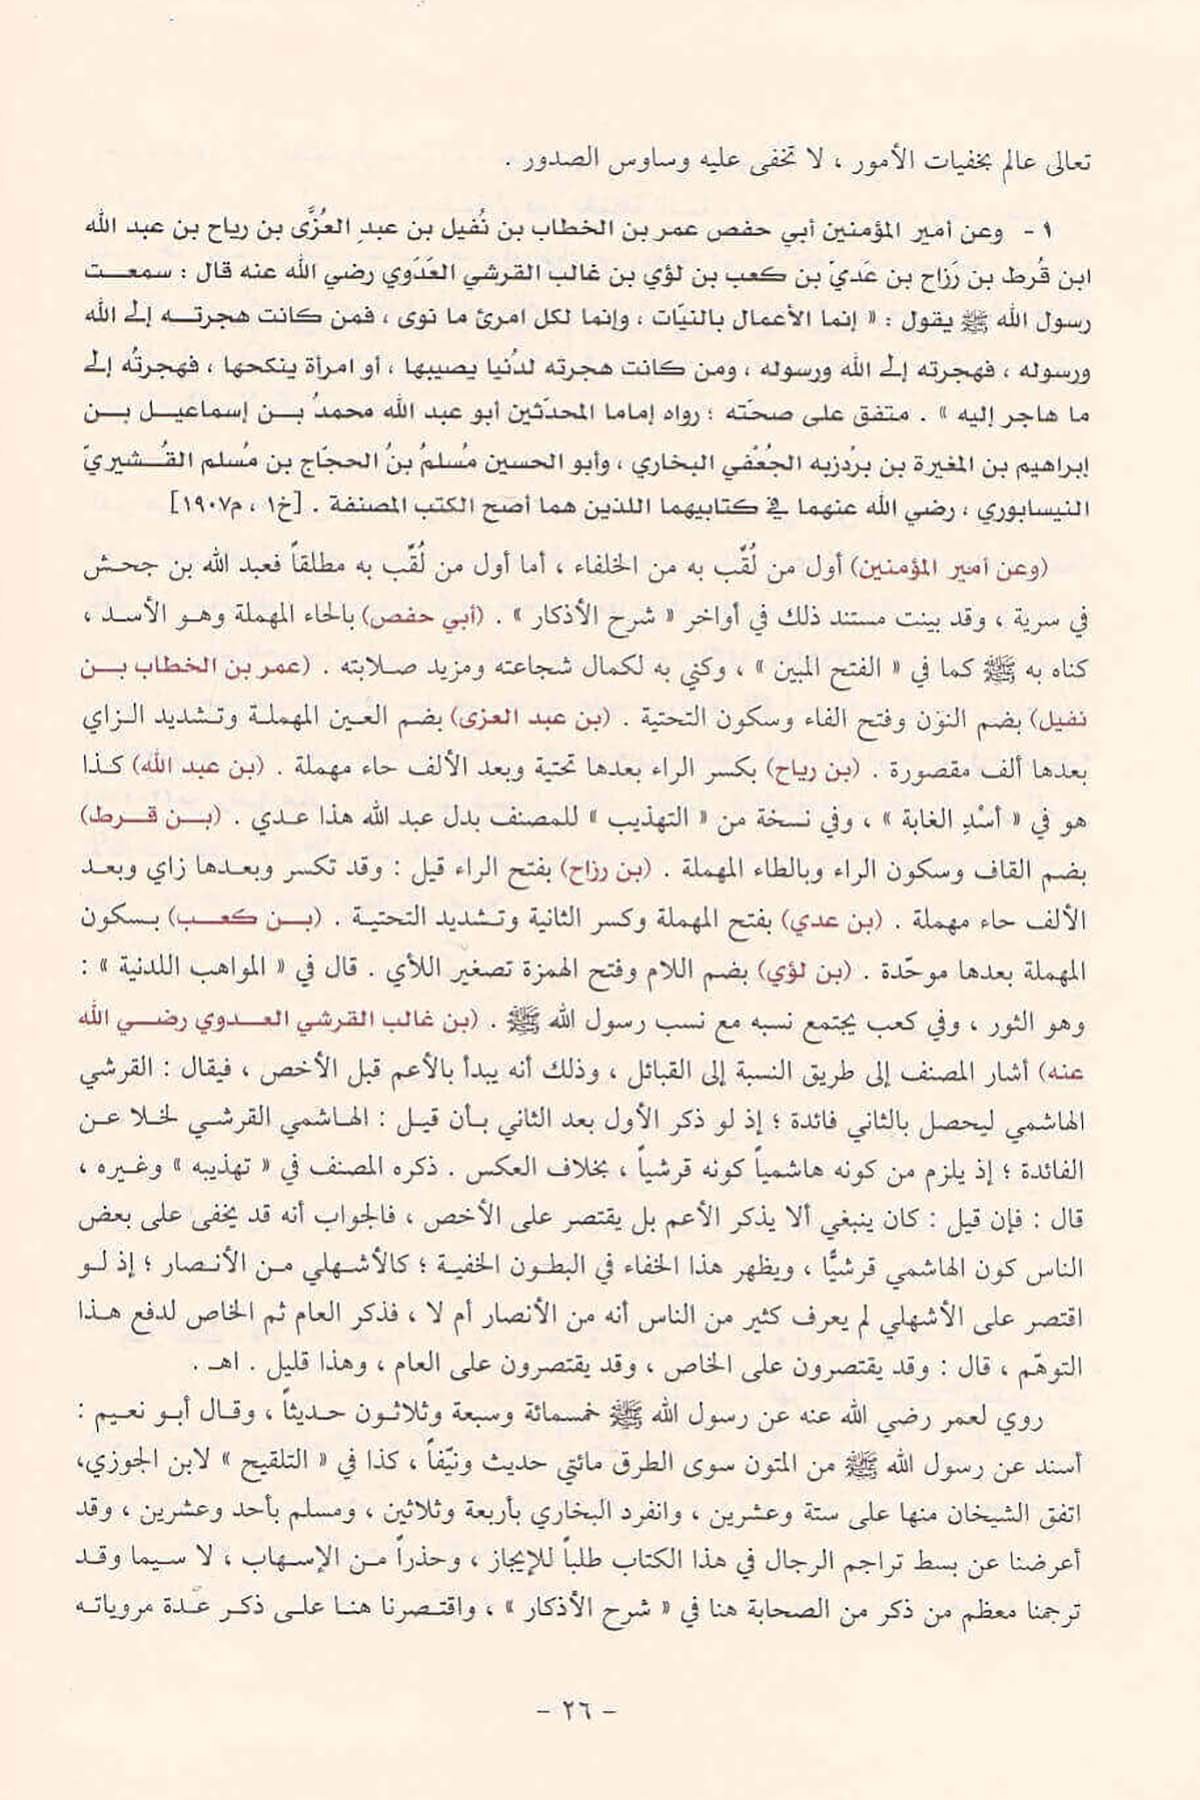 تعالى عالم بخفيات الأمور ، لا تخفى عليه وساوس الصدور .
١ - وعن أمير المؤمنين أبي حفص عمر بن الخطاب بن نُفيل بن عبدِ العُزَّى بن رياح بن عبد الله
ابن قُرط بن رَزاح بن عَديّ بن كعب بن لؤي بن غالب القرشي العَدَوي رضي الله عنه قال : سمعت
رسول الله ﷺ يقول : « إنما الأعمال بالنيّات ، وإنما لكل امرئ ما نوى ، فمن كانت هجرته إلى الله
ورسوله ، فهجرته إلى الله ورسوله ، ومن كانت هجرته لدُنيا يصيبها ، أو امرأة ينكحها ، فهجرتُه إلى
ما هاجر إليه » . متفق على صحّته ؛ رواه إماما المحدّثين أبو عبد الله محمدُ بن إسماعيل بن
إبراهيم بن المغيرة بن بردزبه الجُعْفي البخاري ، وأبو الحسين مُسلمُ بنُ الحجّاج بن مُسلم القُشيريّ
النيسابوري ، رضي الله عنهما في كتابيهما اللذين هما أصح الكتب المصنفة . [خ١ ، م١٩٠٧]
(وعن أمير المؤمنين) أول من لُقّب به من الخلفاء ، أما أول من لُقّب به مطلقاً فعبد الله بن جحش
في سرية ، وقد بينت مستند ذلك في أواخر « شرح الأذكار » . (أبي حفص) بالحاء المهملة وهو الأسد ،
كناه به ﷺ كما في « الفتح المبين » ، وكني به لكمال شجاعته ومزيد صلابته . (عمر بن الخطاب بن
نفيل) بضم النون وفتح الفاء وسكون التحتية . (بن عبد العزى) بضم العين المهملة وتشديد الزاي
بعدها ألف مقصورة . (بن رياح) بكسر الراء بعدها تحتية وبعد الألف حاء مهملة . (بن عبد الله) كذا
هو في « أسْدِ الغابة » ، وفي نسخة من « التهذيب » للمصنف بدل عبد الله هذا عدي . (بن قرط)
بضم القاف وسكون الراء وبالطاء المهملة . (بن رزاح) بفتح الراء قيل : وقد تكسر وبعدها زاي وبعد
الألف حاء مهملة . (بن عدي) بفتح المهملة وكسر الثانية وتشديد التحتية . (بن كعب) بسكون
المهملة بعدها موحّدة . (بن لؤي) بضم اللام وفتح الهمزة تصغير اللأي . قال في « المواهب اللدنية » :
وهو الثور ، وفي كعب يجتمع نسبه مع نسب رسول الله ﷺ . (بن غالب القرشي العدوي رضي الله
عنه) أشار المصنف إلى طريق النسبة إلى القبائل ، وذلك أنه يبدأ بالأعم قبل الأخص ، فيقال : القرشي
الهاشمي ليحصل بالثاني فائدة ؛ إذ لو ذكر الأول بعد الثاني بأن قيل : الهاشمي القرشي لخلا عن
الفائدة ؛ إذ يلزم من كونه هاشمياً كونه قرشياً ، بخلاف العكس . ذكره المصنف في « تهذيبه » وغيره ،
قال : فإن قيل : كان ينبغي ألا يذكر الأعم بل يقتصر على الأخص ، فالجواب أنه قد يخفى على بعض
الناس كون الهاشمي قرشيًّا ، ويظهر هذا الخفاء في البطون الخفية ؛ كالأشهلي من الأنصار ؛ إذ لو
اقتصر على الأشهلي لم يعرف كثير من الناس أنه من الأنصار أم لا ، فذكر العام ثم الخاص لدفع هذا
التوهّم ، قال : وقد يقتصرون على الخاص ، وقد يقتصرون على العام ، وهذا قليل . اهـ .
روي لعمر رضي الله عنه عن رسول الله ﷺ خمسمائة وسبعة وثلاثون حديثاً ، وقال أبو نعيم :
أسند عن رسول الله ﷺ من المتون سوى الطرق مائتي حديث ونيّفاً ، كذا في « التلقيح » لابن الجوزي،
اتفق الشيخان منها على ستة وعشرين ، وانفرد البخاري بأربعة وثلاثين ، ومسلم بأحد وعشرين ، وقد
أعرضنا عن بسط تراجم الرجال في هذا الكتاب طلباً للإيجاز ، وحذراً من الإسهاب ، لا سيما وقد
ترجمنا معظم من ذكر من الصحابة هنا في « شرح الأذكار » ، واقتصرنا هنا على ذكر عدة مروياته
- ٢٦ -